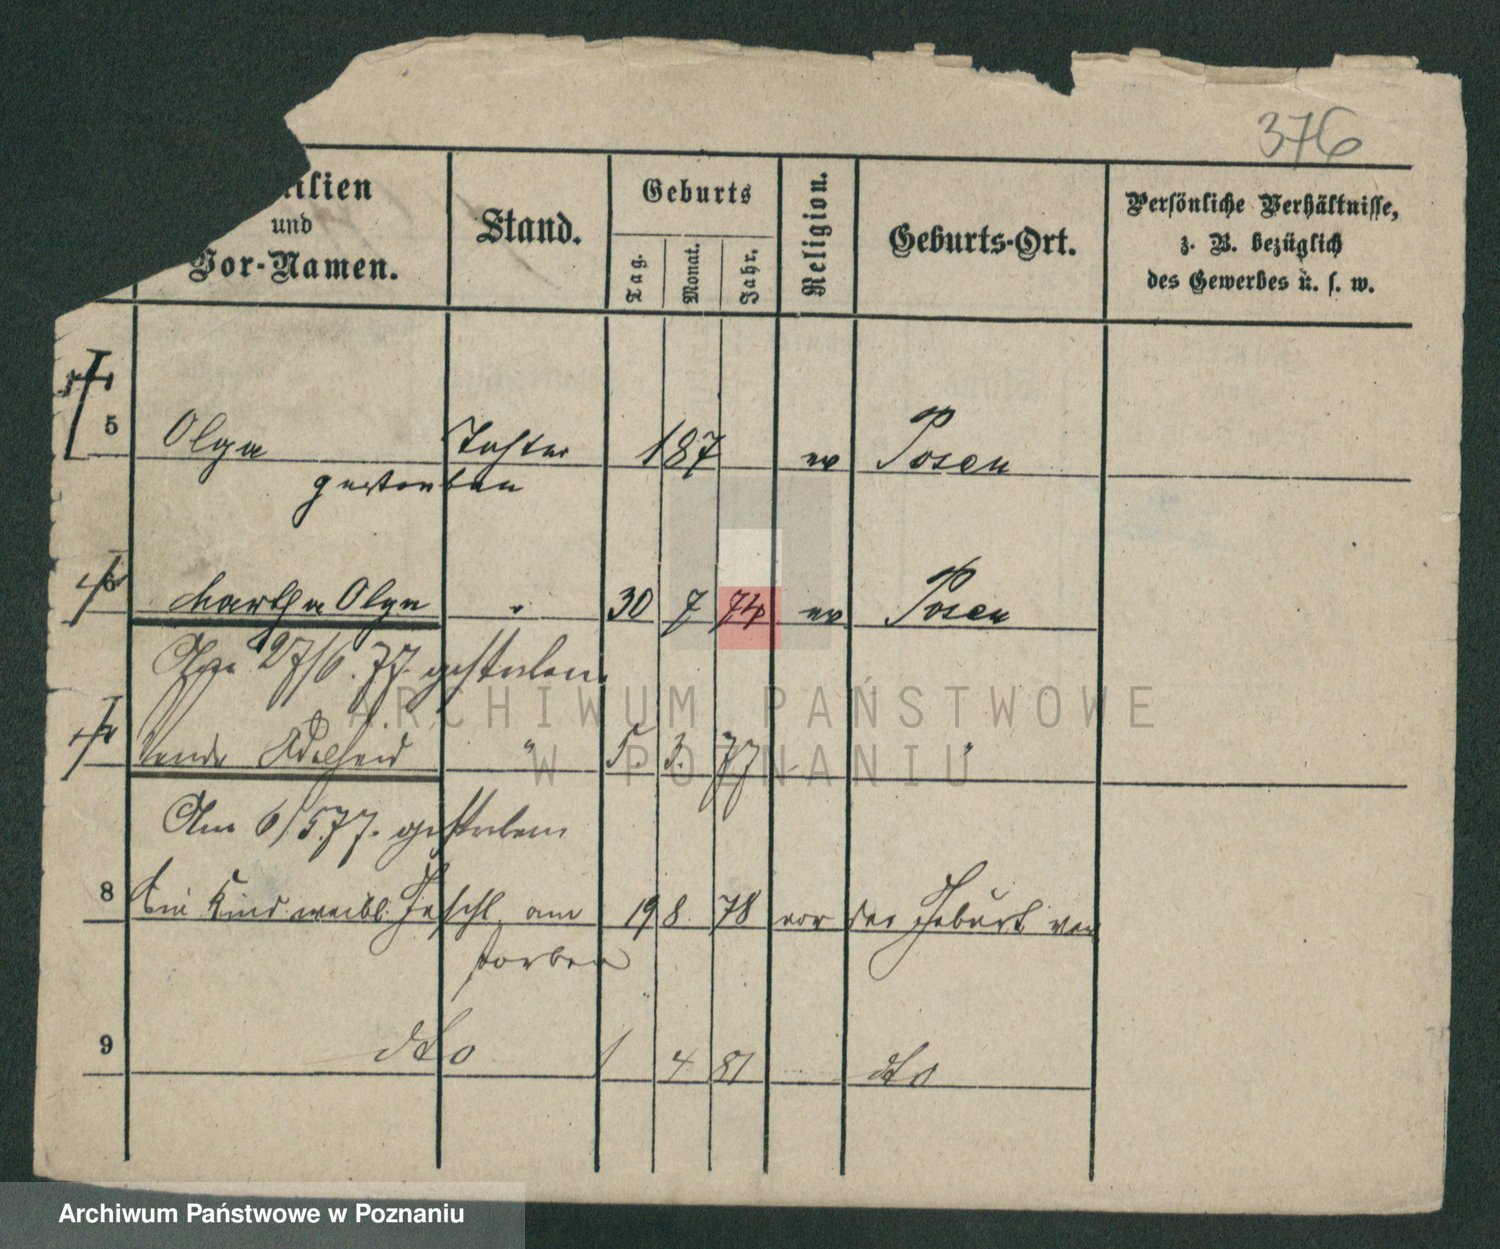 376
ilien
und
Vor-Namen.
Stand.
Geburts
Tag.
Monat.
Jahr.
Religion.
Geburts-Ort.
Persönliche Verhältnisse,
z. B. bezüglich
des Gewerbes u. s. w.
5 Olga Tochter 187 ev Posen
gestorben
6 Martha Olga " 30 7 74 ev Posen
Am 27/6.77. gestorben
Adelheid " 5. 3. 77 "
Am 6/5.77. gestorben
8 Ein Kind weibl. Geschl. am 19 8. 78 vor der Geburt ver
storben
9 dto 1 4 81 dto
ARCHIWUM PAŃSTWOWE
W POZNANIU
Archiwum Państwowe w Poznaniu